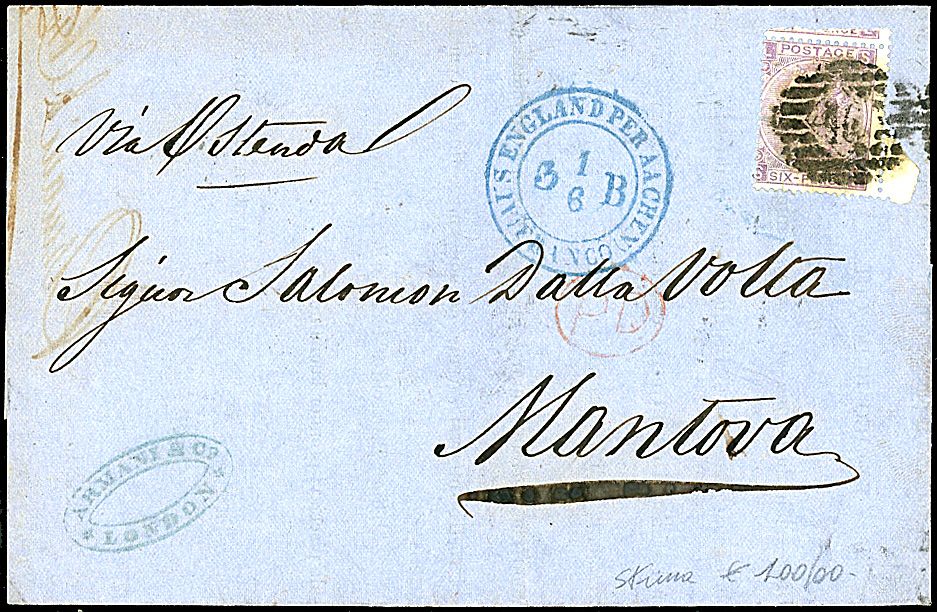 POSTAGE S
SIX-PENCE
Via Ostenda
AUS ENGLAND PER AACHEN
FRANCO
3 1/6 B
Signor Salomon Dalla Volta
PD
Mantova
ARMANI & Co
LONDON
€ 100/00-